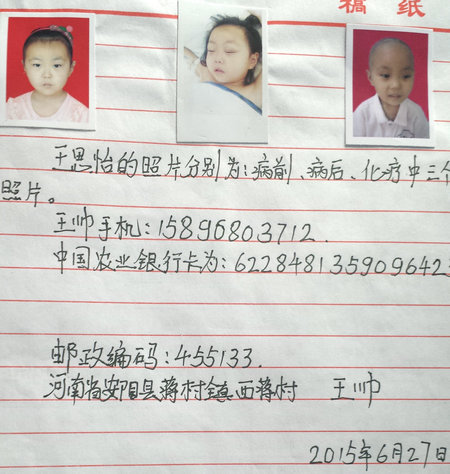 稿 纸
王思怡的照片分别为:病前、病后、化疗中三个
照片。
王帅手机:15896803712.
中国农业银行卡为:622848135909642
邮政编码:455133.
河南省安阳县蒋村镇西蒋村 王帅
2015年6月27日